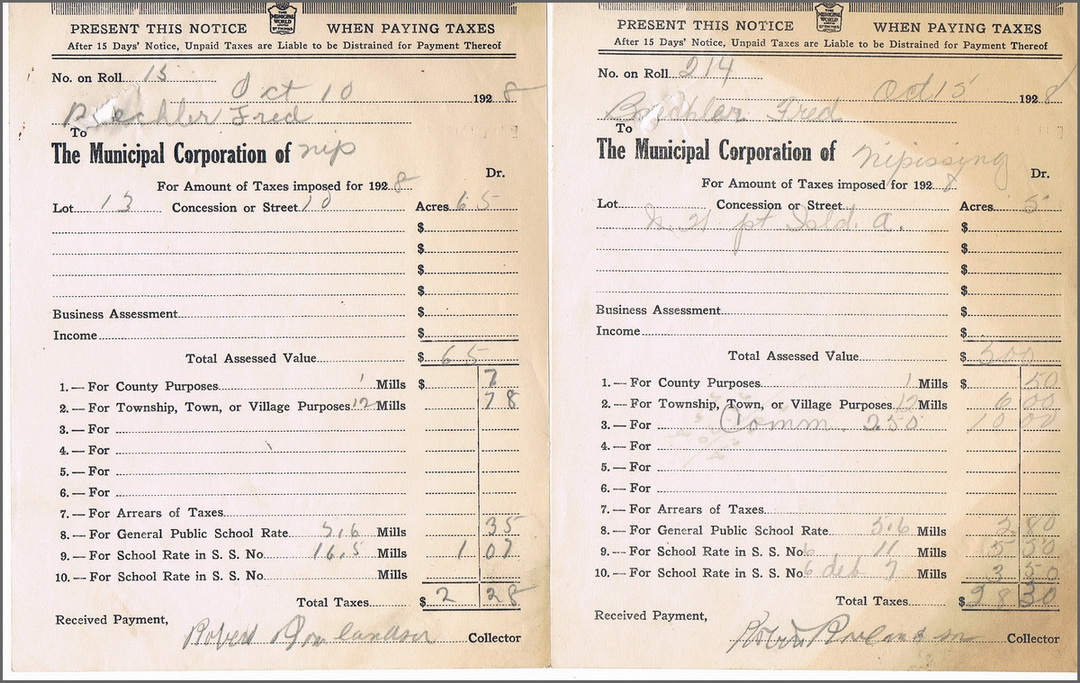 THE
MUNICIPAL
WORLD
PRESENT THIS NOTICE WHEN PAYING TAXES
After 15 Days' Notice, Unpaid Taxes are Liable to be Distrained for Payment Thereof
No. on Roll 15
Oct 10 1928
Fred
To
The Municipal Corporation of nip
Dr.
For Amount of Taxes imposed for 1928
Lot 13 Concession or Street 10 Acres 65
$
$
$
$
Business Assessment $
Income $
Total Assessed Value $ 65
1.—For County Purposes 1 Mills $ 7
2.—For Township, Town, or Village Purposes 12 Mills 78
3.—For
4.—For
5.—For
6.—For
7.—For Arrears of Taxes
8.—For General Public School Rate 5.6 Mills 35
9.—For School Rate in S. S. No. 16.5 Mills 1 07
10.—For School Rate in S. S. No. Mills
Total Taxes $ 2 28
Received Payment,
Robert Rowlandson Collector
THE
MUNICIPAL
WORLD
PRESENT THIS NOTICE WHEN PAYING TAXES
After 15 Days' Notice, Unpaid Taxes are Liable to be Distrained for Payment Thereof
No. on Roll 214
Oct 15 1928
Fred
To
The Municipal Corporation of Nipissing
Dr.
For Amount of Taxes imposed for 1928
Lot Concession or Street Acres 5
pt Isld. A.
$
$
$
$
Business Assessment $
Income $
Total Assessed Value $ 500
1.—For County Purposes 1 Mills $ 50
2.—For Township, Town, or Village Purposes 12 Mills 6 00
3.—For Comm. 250 10 00
4.—For
5.—For
6.—For
7.—For Arrears of Taxes
8.—For General Public School Rate 5.6 Mills 2 80
9.—For School Rate in S. S. No. 6 11 Mills 5 50
10.—For School Rate in S. S. No. 6 deb 7 Mills 3 50
Total Taxes $ 28 30
Received Payment,
Robert Rowlandson Collector